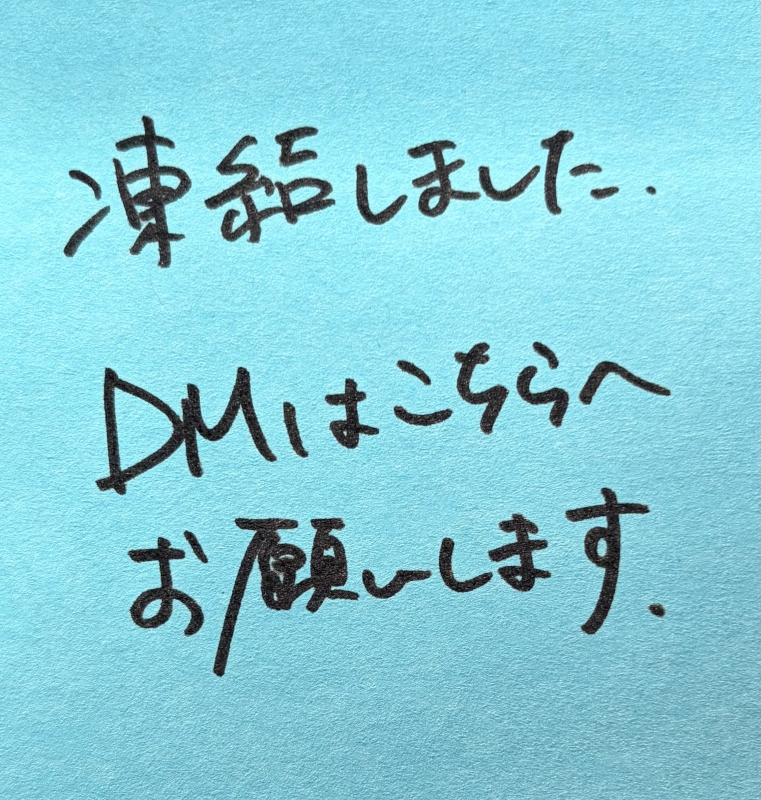 凍結しました.
DMはこちらへ
お願いします.